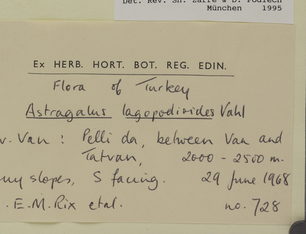 Det. Rev. Sh. Zarre & D. Podlech
München 1995
Ex HERB. HORT. BOT. REG. EDIN.
Flora of Turkey
Astragalus lagopodioides Vahl
v. Van: Pelli da, between Van and
Tatvan, 2000 - 2500 m.
slopes, S facing. 29 June 1968
E.M. Rix et al. no. 728